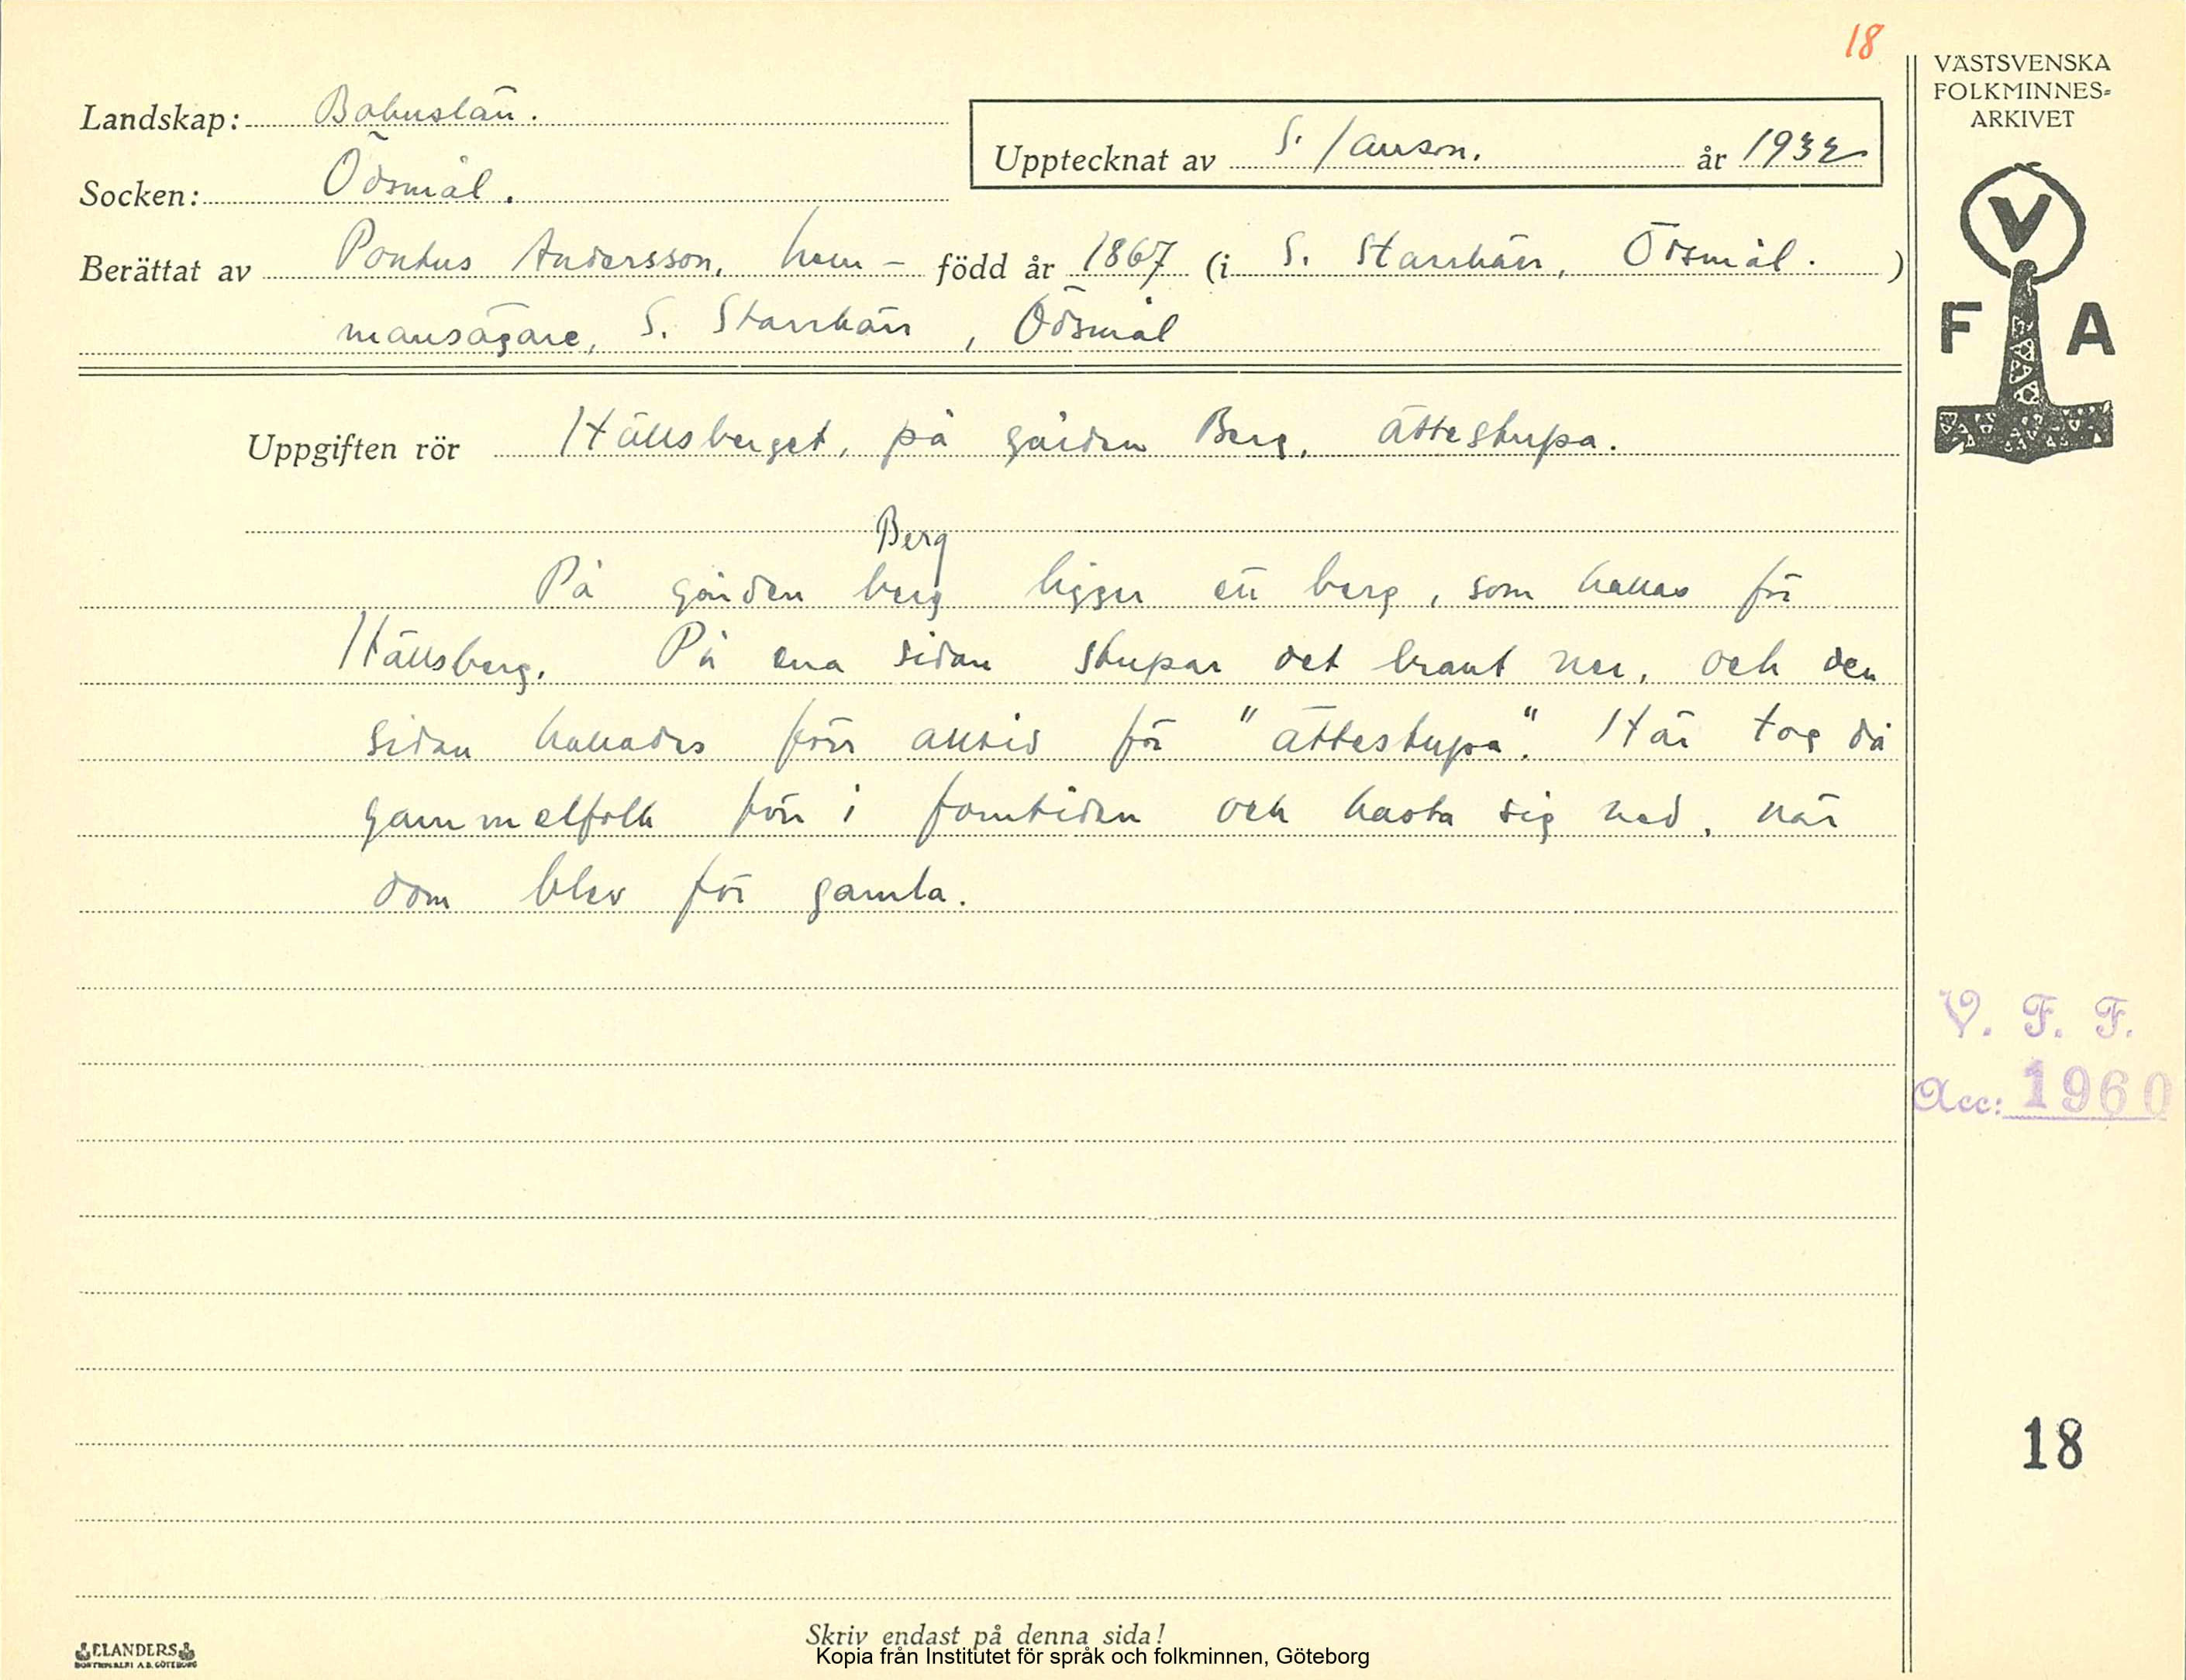 18
VÄSTSVENSKA
FOLKMINNES-
ARKIVET
Landskap: Bohuslän.
Upptecknat av S. Janson. år 1932
Socken: Ödsmål.
Berättat av Pontus Andersson, hem- född år 1867 (i S. Starrkärr, Ödsmål. )
mansägare, S. Starrkärr, Ödsmål
V
F A
Uppgiften rör Hällsberget, på gården Berg, ättestupa.
Berg
På gården berg ligger ett berg, som kallas för
Hällsberg. På ena sidan stupar det brant ner, och den
sidan kallades förr alltid för "ättestupa". Här tog då
gammelfolk förr i forntiden och kasta sig ned, när
dom blev för gamla.
V. F. F.
Acc: 1960
18
Skriv endast på denna sida!
ELANDERS
BOKTRYCKERI A.B. GÖTEBORG
Kopia från Institutet för språk och folkminnen, Göteborg